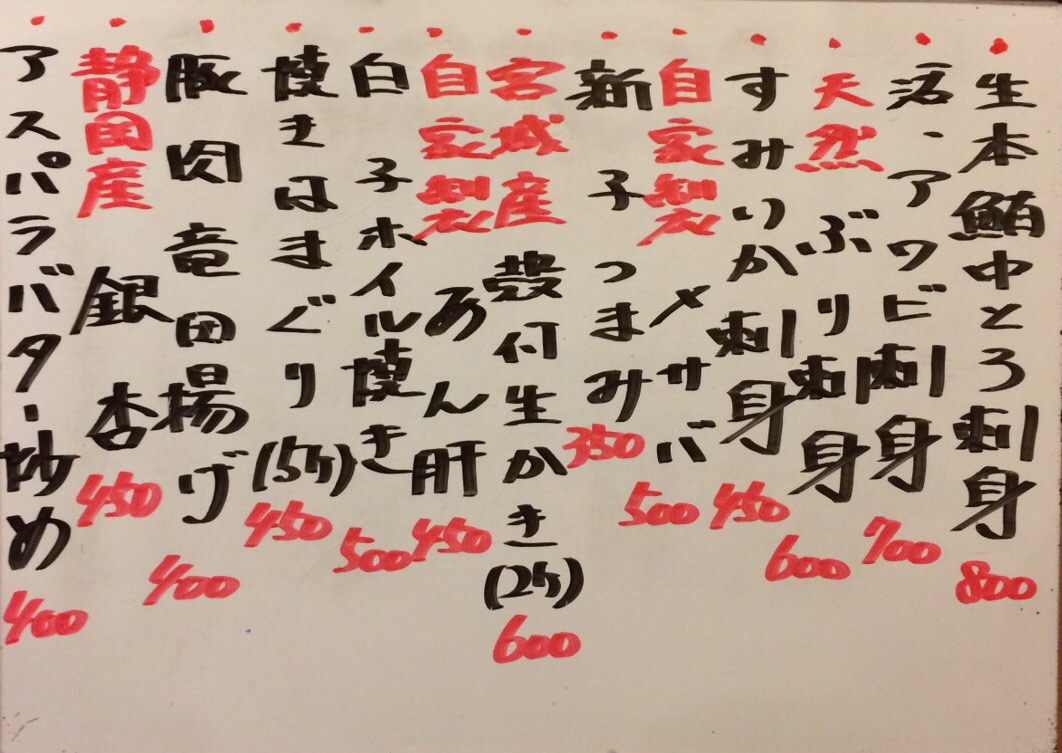 ・生本鮪中とろ刺身 800
・活、アワビ刺身 700
・天然 ぶり刺身 600
・すみいか刺身 450
・自家製 〆サバ 500
・新子つまみ 350
・宮城産 殻付生かき(2ケ) 600
・自家製 あん肝 450
・白子ホイル焼き 500
・焼きはまぐり(5ケ) 450
・豚肉竜田揚げ 400
・静岡産 銀杏 450
・アスパラバター炒め 400